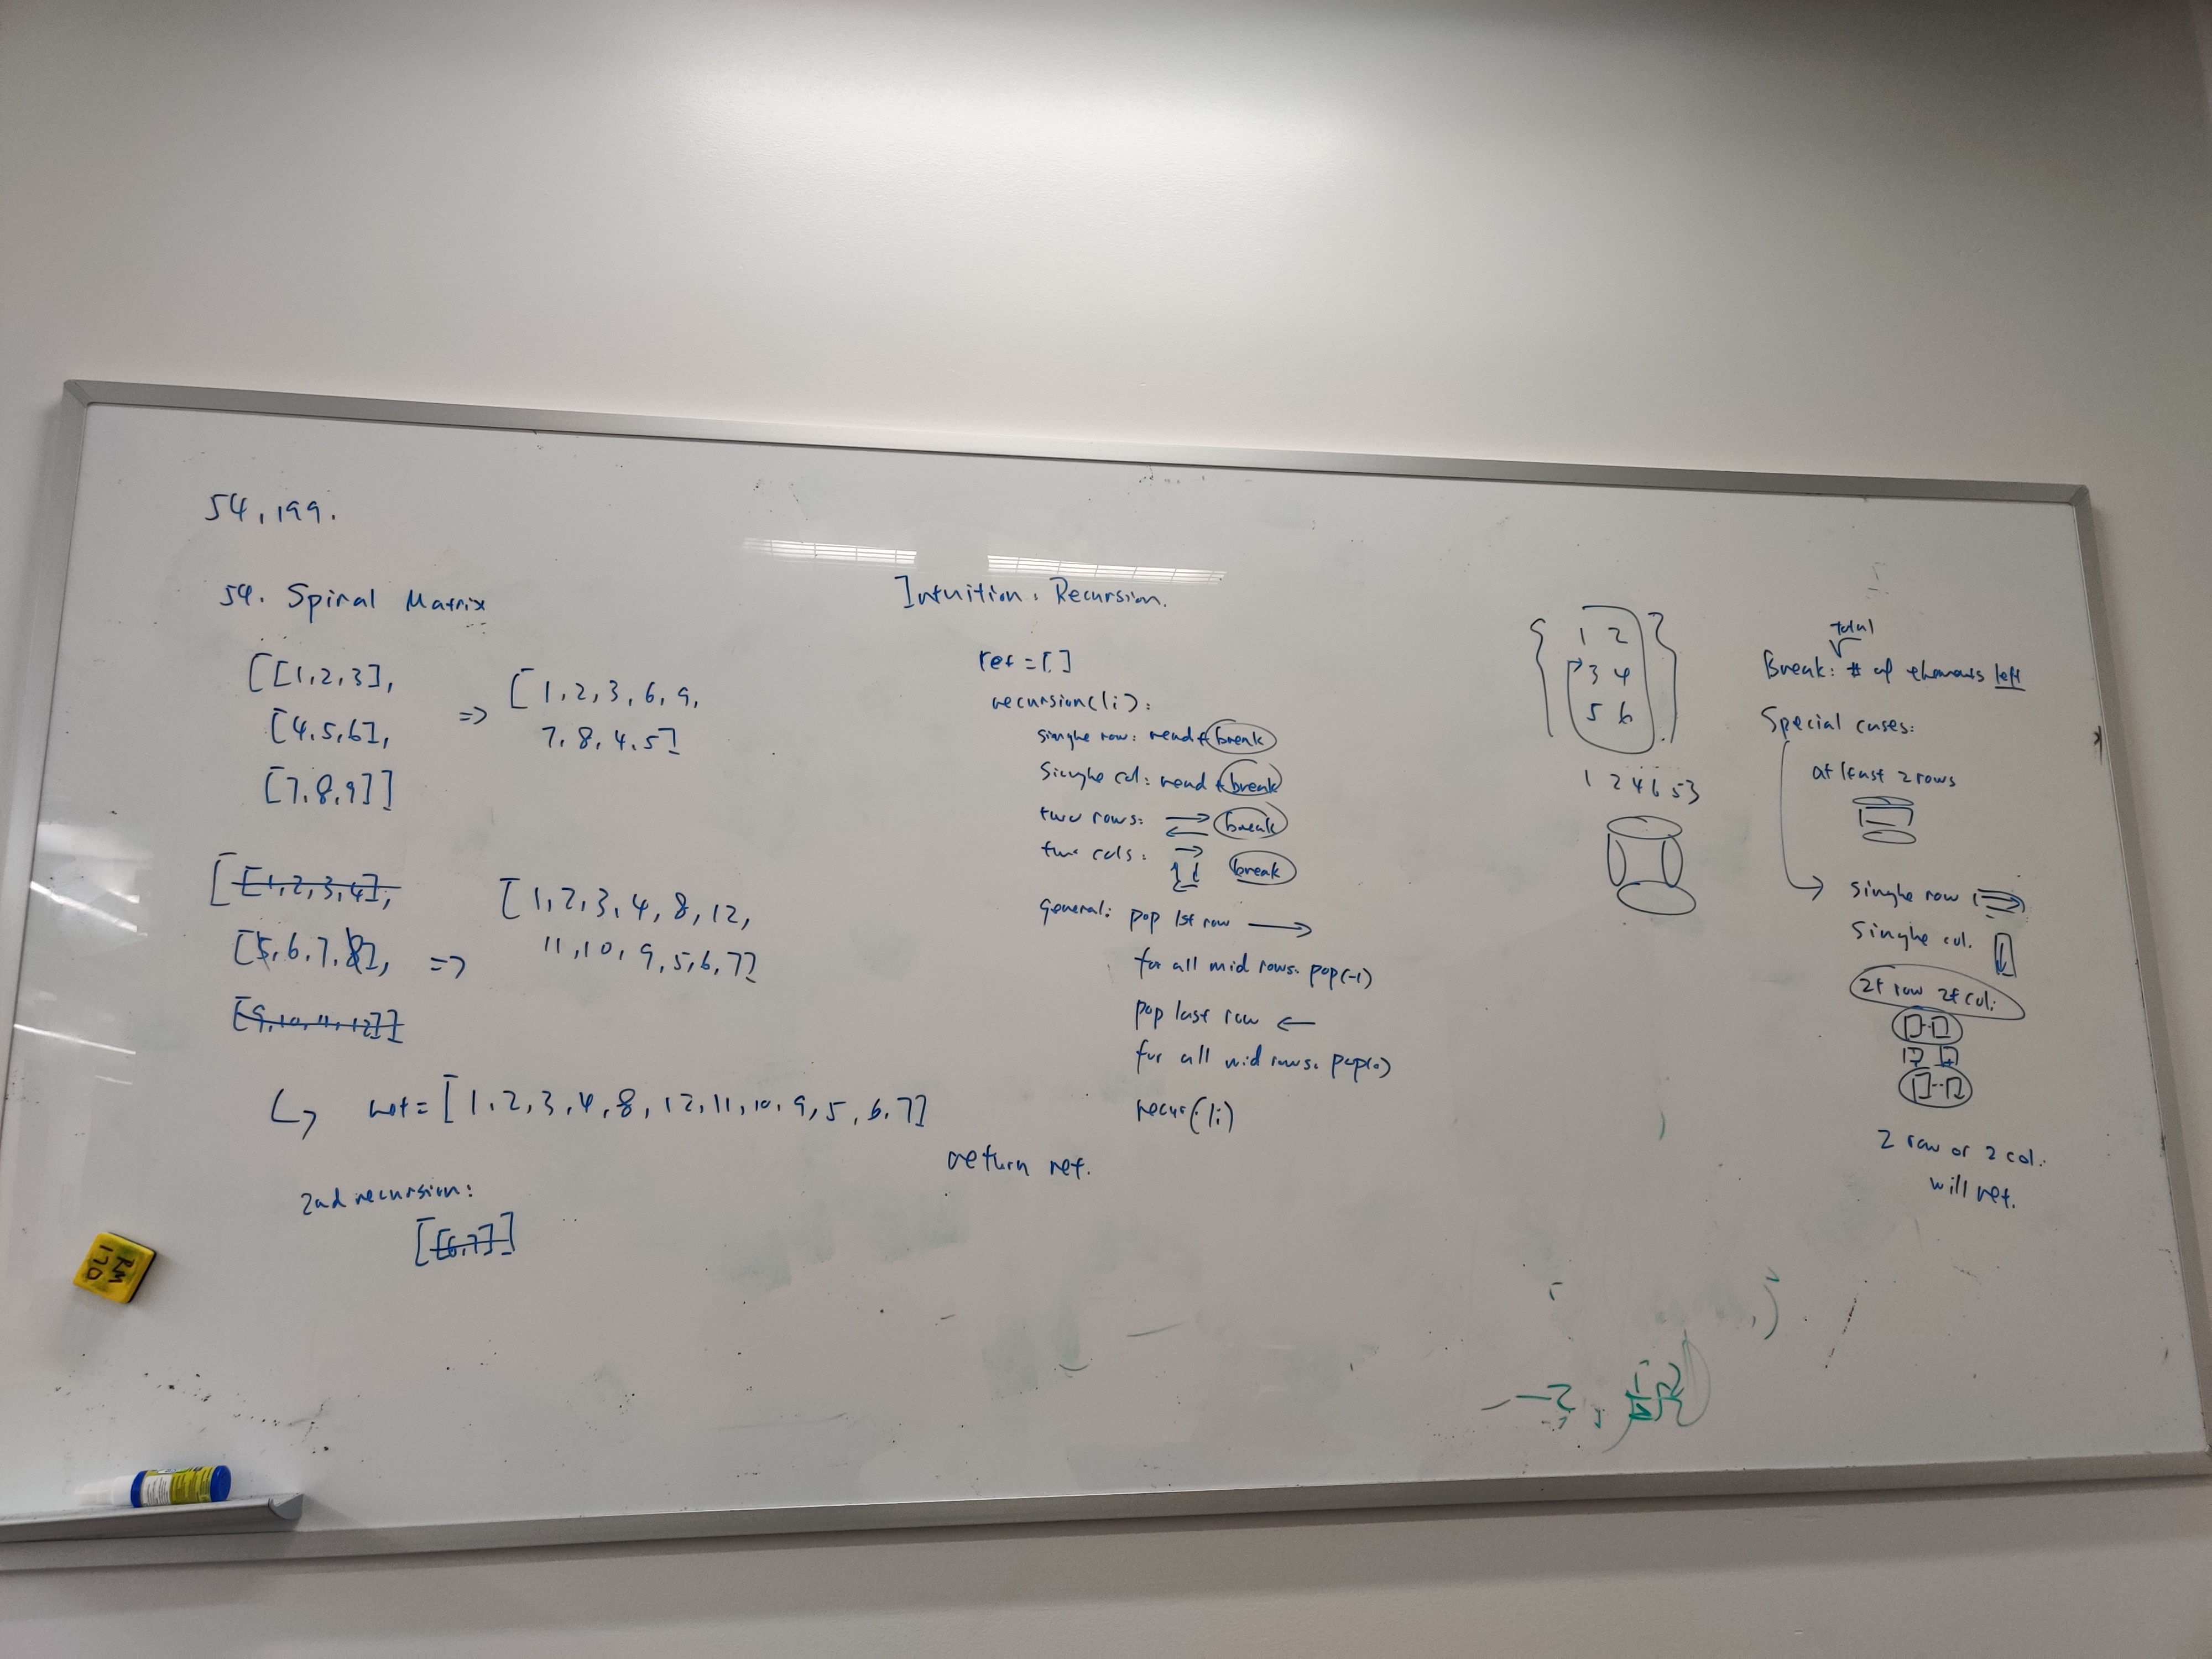 54, 199.
54. Spiral Matrix
[[1,2,3],
[4,5,6],
[7,8,9]]
=> [1,2,3,6,9,
7,8,4,5]
[[1,2,3,4],
[5,6,7,8],
[9,10,11,12]]
=> [1,2,3,4,8,12,
11,10,9,5,6,7]
ret = [1,2,3,4,8,12,11,10,9,5,6,7]
2nd recursion:
[[6,7]]
Intuition: Recursion.
ret = []
recursion(li):
single row: read + break
single col: read + break
two rows: break
two cols: break
general: pop 1st row →
for all mid rows. pop(-1)
pop last row ←
for all mid rows. pop(0)
recur(li)
return ret.
1 2
3 4
5 6
1 2 4 6 5 3
total
Break: # of elements left
Special cases:
at least 2 rows
single row
single col.
2+ row 2+ col:
2 row or 2 col.
will ret.
RM
170